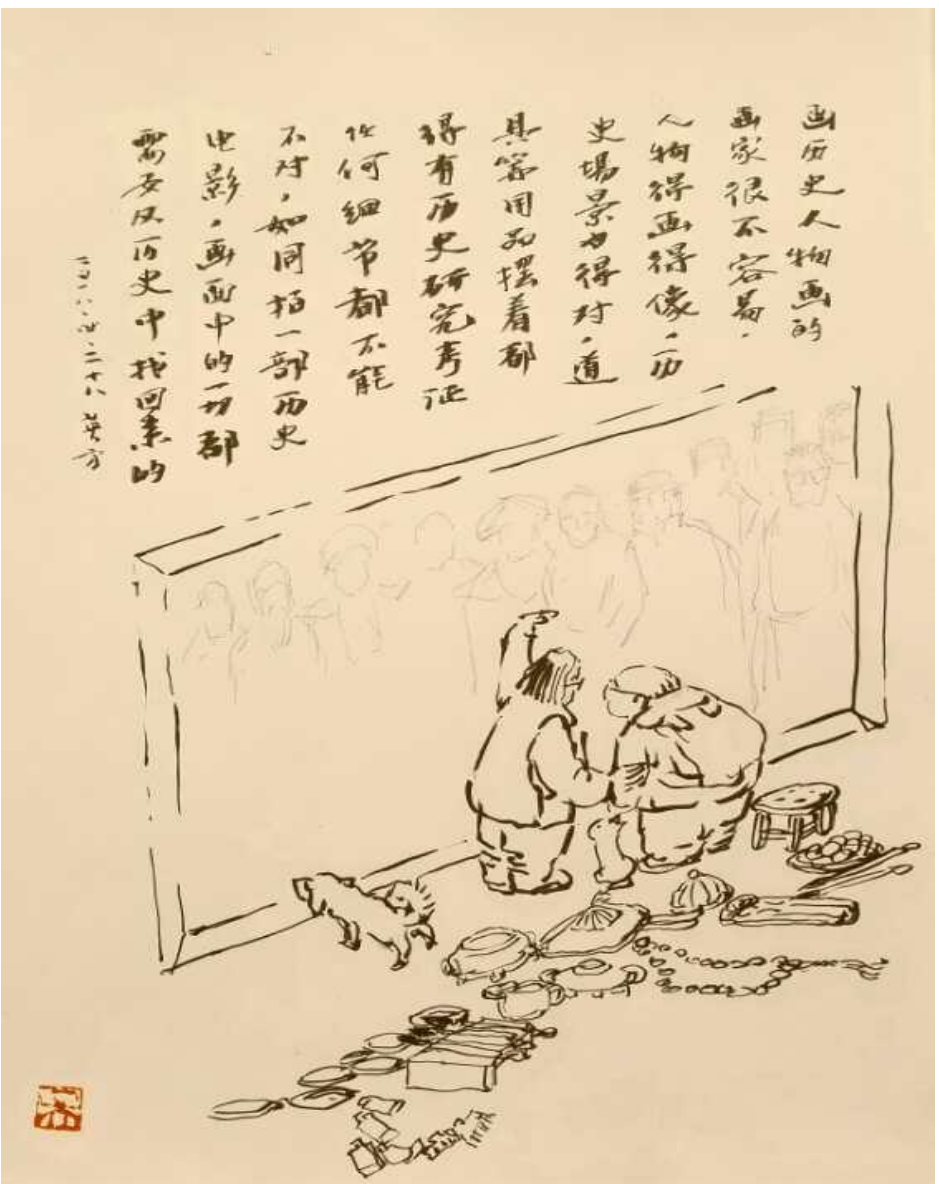 画历史人物画的
画家很不容易，
人物得画得像，历
史場景也得对，道
具家用品摆着都
得有历史研究考证
任何细节都不能
不对，如同拍一部历史
电影，画面中的一切都
需要从历史中找回来的
二〇一八·四·二十八 英方